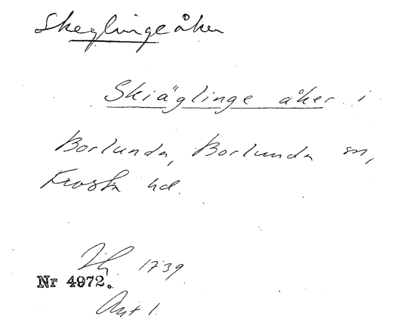 Skeglingeåker
Skiäglinge åker i
Borlunda, Borlunda sn,
Frosta hd.
1739
Nr 4972.
Akt 1.